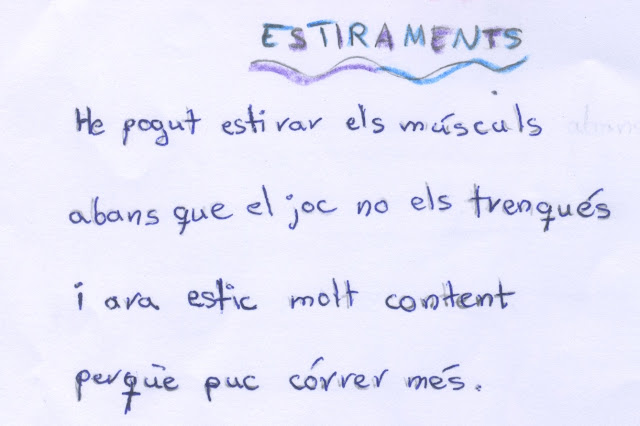 ESTIRAMENTS
He pogut estirar els músculs
abans que el joc no els trenqués
i ara estic molt content
perquè puc córrer més.